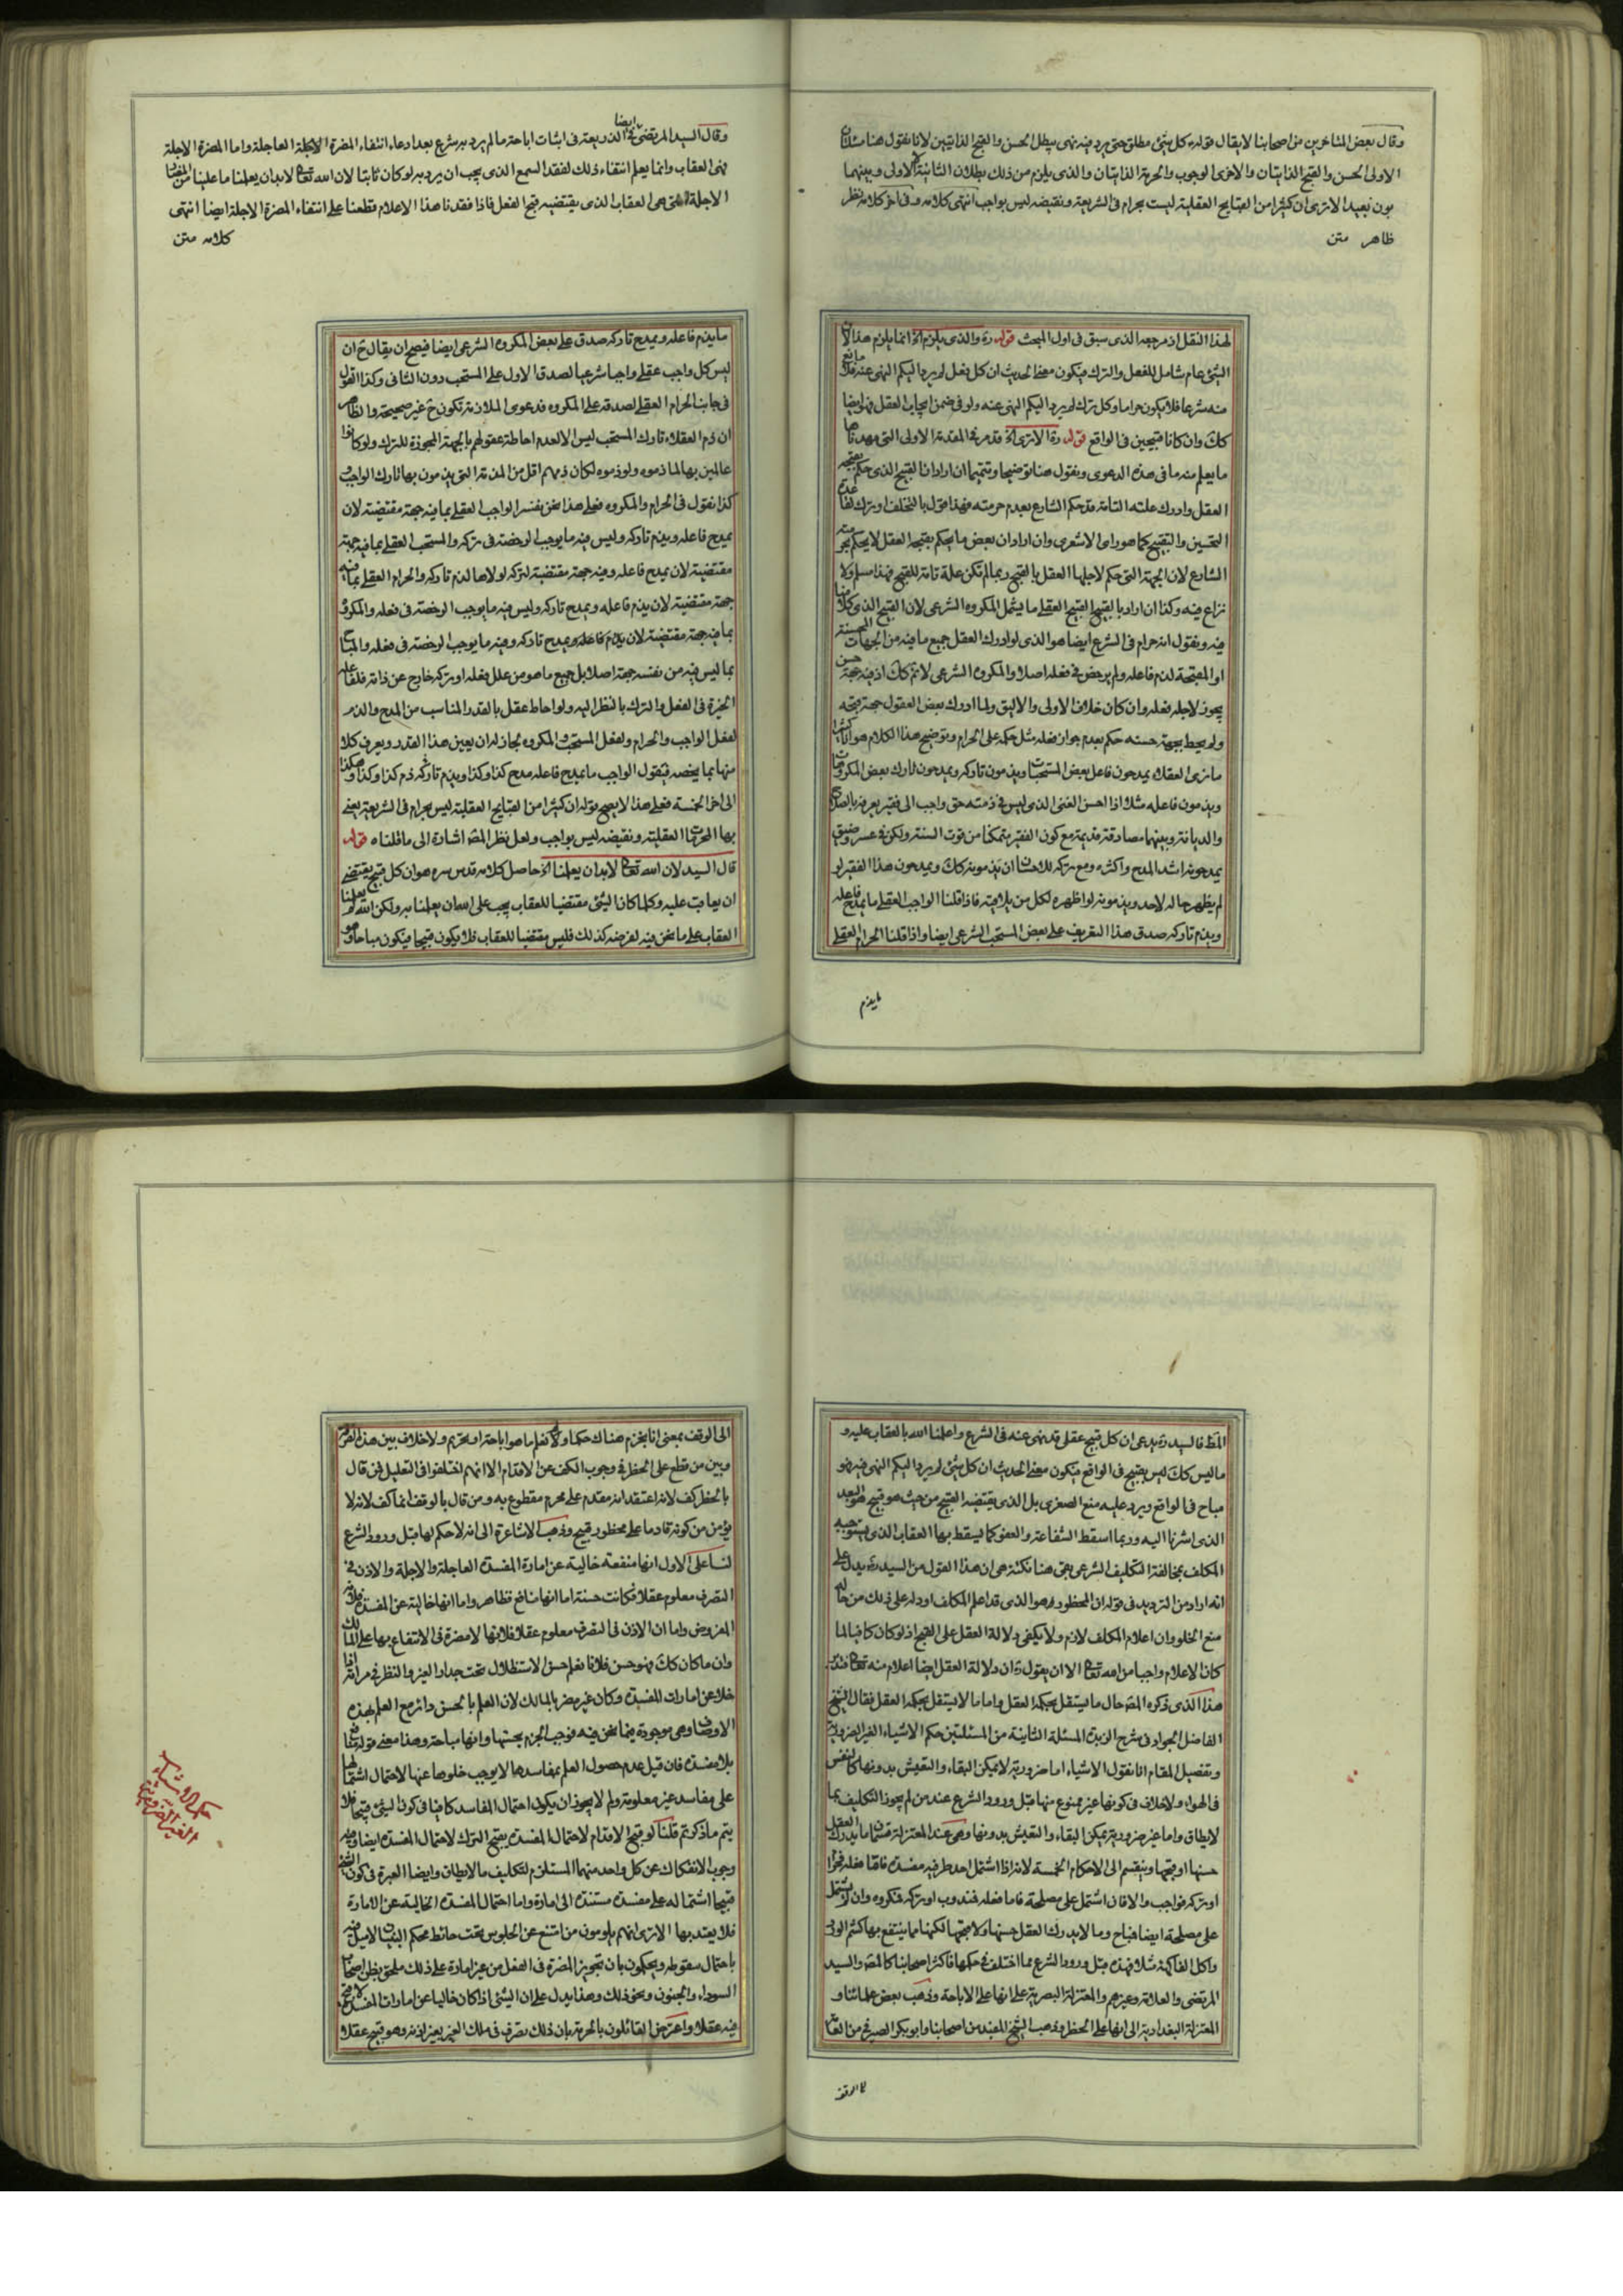 وقال بعض المتاخرين من اصحابنا لا يقال قوله كل شئ مطلق حتى يرد فيه نهى يبطل الحسن والقبح الذاتيين لانا نقول هنا مسئلتان
الاولى الحسن والقبح الذاتيان والاخرى الوجوب والحرمة الذاتيان والذى يلزم من ذلك بطلان الثانية لا الاولى وبينهما
بون بعيد الا ترى ان كثيرا من القبايح العقلية ليست بحرام فى الشريعة ونقيضه ليس بواجب انتهى كلامه وفى اخر كلامه نظر
ظاهر متن
لهذا النقل اذ مرجعه الذى سبق فى اول المبحث قوله ره والذى يلزم اه انما يلزم هذا لان
الشئ عام شامل للفعل والترك فيكون معنى الحديث ان كل فعل لم يرد اليكم النهى عنه فلا مانع
منه شرعا فلا يكون حراما وكل ترك لم يرد اليكم النهى عنه ولو فى ضمن ايجاب الفعل فهو ايضا
كك وان كانا قبيحين فى الواقع قوله ره الا ترى اه قد مر فى المقدمة الاولى التى مهدناها
ما يعلم منه ما فى هذه الدعوى ونقول هنا توضيحا وتتميما ان اراد ان القبيح الذى حكم بقبحه
العقل وادرك علته التامة قد حكم الشارع بعدم حرمته فهذا قول بالتخلف او ترك لقاعدة
التحسين والتقبيح كما هو راى الاشعرى وان اراد ان بعض ما يحكم بقبحه العقل لا يحكم بحرمته
الشارع لان الجهة التى حكم لاجلها العقل بالقبح ربما لم تكن علة تامة للقبح فهذا مسلم ولا
نزاع فيه وكذا ان اراد بالقبيح القبيح العقلى ما يشمل المكروه الشرعى لان القبيح الذى كلامنا
فيه ونقول انه حرام فى الشرع ايضا هو الذى لو ادرك العقل جميع ما فيه من الجهات المحسنة
او المقبحة لذم فاعله ولم يرخص فى فعله اصلا والمكروه الشرعى لا نم كك اذ فيه جهة حسن
يجوز لاجله فعله وان كان خلاف الاولى والاليق ولما ادرك بعض العقول جهة قبحه
ولم يحط بجهة حسنه حكم بعدم جواز فعله مثل حكمه على الحرام وتوضيح هذا الكلام هو انا كثيرا
ما نرى العقلاء يمدحون فاعل بعض المستحبات ويذمون تاركه ويمدحون تارك بعض المكروهات
ويذمون فاعله مثلا اذا احسن الغنى الذى ليس فى ذمته حق واجب الى فقير يعرفه بالصلاح
والديانة وبينهما مصادقة قديمة مع كون الفقير متمكنا من قوت السنة ولكن فى عسر وضيق
يمدحونه اشد المدح واكثره ومع تركه للاحسان يذمونه كك ويمدحون هذا الفقير لو
لم يظهر حاله لاحد ويذمونه لو اظهره لكل من يلاقيه فاذا قلنا الواجب العقلى ما يمدح فاعله
ويذم تاركه صدق هذا التعريف على بعض المستحب الشرعى ايضا واذا قلنا الحرام العقلى
ما يذم
وقال السيد المرتضى فى الذريعة ايضا فى اثبات اباحة ما لم يرد به شرع بعد ادعاء انتفاء المضرة العاجلة واما المضرة الاجلة
فهى العقاب وانما يعلم انتفاء ذلك لفقد السمع الذى يجب ان يرد به لو كان ثابتا لان الله تعالى لابد ان يعلمنا ما علينا من المضار
الاجلة التى هى العقاب الذى يقتضيه قبح الفعل فاذا فقدنا هذا الاعلام قطعنا على انتفاء المضرة الاجلة ايضا انتهى
كلامه متن
ما يذم فاعله ويمدح تاركه صدق على بعض المكروه الشرعى ايضا فيصح ان يقال ح ان
ليس كل واجب عقلى واجبا شرعيا لصدق الاول على المستحب دون الثانى وكذا القول
فى جانب الحرام العقلى لصدقه على المكروه فدعوى الملازمة تكون ح غير صحيحة والظاهر
ان ذم العقلاء تارك المستحب ليس الا لعدم احاطة عقولهم بالجهة المجوزة للترك ولو كانوا
عالمين بها لما ذموه ولو ذموه لكان ذمهم اقل من المذمة التى يذمون بها تارك الواجب و
كذا نقول فى الحرام والمكروه فعلى هذا نحن نفسر الواجب العقلى بما فيه جهة مقتضية لان
يمدح فاعله ويذم تاركه وليس فيه ما يوجب الرخصة فى تركه والمستحب العقلى بما فيه جهة
مقتضية لان يمدح فاعله وفيه جهة مقتضية لتركه لولاها لذم تاركه والحرام العقلى بما فيه
جهة مقتضية لان يذم فاعله ويمدح تاركه وليس فيه ما يوجب الرخصة فى فعله والمكروه
بما فيه جهة مقتضية لان يذم فاعله ويمدح تاركه وفيه ما يوجب الرخصة فى فعله والمباح
بما ليس فيه من نفسه جهة اصلا بل جميع ما هو من علل فعله او تركه خارج عن ذاته فلفاعله
الخيرة فى الفعل والترك بالنظر اليه ولو احاط عقل بالقدر المناسب من المدح والذم
لفعل الواجب والحرام ولفعل المستحب والمكروه لجاز له ان يعين هذا القدر ويعرف كلا
منها بما يخصه فيقول الواجب ما يمدح فاعله مدح كذا وكذا ويذم تاركه ذم كذا وكذا وهكذا
الى اخر الخمسة فعلى هذا لا يصح قوله ان كثيرا من القبايح العقلية ليس بحرام فى الشريعة يعنى
بها المحرمات العقلية ونقيضه ليس بواجب ولعل نظر المص اشارة الى ما قلناه قوله
قال السيد لان الله تعالى لابد ان يعلمنا اه حاصل كلامه قدس سره هو ان كل قبيح يقتضى
ان يعاقب عليه وكلما كان الشئ مقتضيا للعقاب يجب على الله ان يعلمنا به ولكن الله لم يعلمنا
العقاب على ما نحن فيه لفرضه كذلك فليس مقتضيا للعقاب فلا يكون قبيحا فيكون مباحا وهو
المط فالسيد ره يدعى ان كل قبيح عقلى قد نهى عنه فى الشرع واعلمنا الله بالعقاب عليه و
ما ليس كك ليس بقبيح فى الواقع فيكون معنى الحديث ان كل شئ لم يرد اليكم النهى فيه فهو
مباح فى الواقع ويرد عليه منع الصغرى بل الذى يقتضيه القبيح من حيث هو قبيح هو البعد
الذى اشرنا اليه وربما اسقط الشفاعة والعفو كما يسقط بها العقاب الذى يستوجبه
المكلف بمخالفة التكليف الشرعى بقى هنا نكتة هى ان هذا القول من السيد ره يدل على
انه اراد من الترديد فى قوله ان المحظور هو الذى قد اعلم المكلف او دله على ذلك من حاله
منع الخلو وان اعلام المكلف لازم ولا يكفى دلالة العقل على القبح اذ لو كان كافيا لما
كان الاعلام واجبا من الله تعالى الا ان يقول ره ان دلالة العقل ايضا اعلام منه تعالى فتدبر
هذا الذى ذكره المص حال ما يستقل بحكمه العقل واما ما لا يستقل بحكمه العقل فقال الشيخ
الفاضل الجواد فى شرح الزبدة المسئلة الثانية من المسئلتين حكم الاشياء الغير الضرورية
وتفصيل المقام انا نقول الاشياء اما ضرورية لا يمكن البقاء والتعيش بدونها كالتنفس
فى الهواء ولا خلاف فى كونها غير ممنوع منها قبل ورود الشرع عند من لم يجوز التكليف بما
لا يطاق واما غير ضرورية يمكن البقاء والتعيش بدونها وهى عند المعتزلة قسمان ما يدرك العقل
حسنها او قبحها وينقسم الى الاحكام الخمسة لانه اذا اشتمل احد طرفيه مفسدة فاما فعله فحرام
او تركه فواجب والا فان اشتمل على مصلحة فاما فعله فمندوب او تركه فمكروه وان لم يشتمل
على مصلحة ايضا فمباح وما لا يدرك العقل حسنها ولا قبحها لكنها مما ينتفع بها كشم الورد
واكل الفاكهة مثلا فهذه قبل ورود الشرع مما اختلف فى حكمها فاكثر اصحابنا كالمص والسيد
المرتضى والعلامة وغيرهم والمعتزلة البصرية على انها على الاباحة وذهب بعض علمائنا و
المعتزلة البغدادية الى انها على الحظر وذهب الشيخ المفيد من اصحابنا وابو بكر الصيرفى من العامة
الى الوقف
الى الوقف بمعنى انا نجزم هناك حكما ولا نعلم ما هو اباحة او تحريم ولا خلاف بين هذه الفرقة
وبين من قطع على الحظر فى وجوب الكف عن الاقدام الا انهم اختلفوا فى التعليل فمن قال
بالحظر كف لانه اعتقد انه مقدم على محرم مقطوع به ومن قال بالوقف انما كف لانه لا
يؤمن من كونه قادما على محظور قبيح وذهب الاشاعرة الى انه لا حكم لها قبل ورود الشرع
لنا على الاول انها منفعة خالية عن امارة المفسدة العاجلة والاجلة والاذن فى
التصرف معلوم عقلا فكانت حسنة اما انها منافع فظاهر واما انها خالية عن المفسدة فلانه
المفروض واما ان الاذن فى التصرف معلوم عقلا فلانها لا مضرة فى الانتفاع بها على المالك
وان ما كان كك فهو حسن فلانا نعلم حسن الاستظلال تحت جدار الغير والنظر فى مراته اذا
خلا عن امارات المفسدة وكان غير مضر بالمالك لان العلم بالحسن دائر مع العلم بهذه
الاوصاف وهى موجودة فيما نحن فيه فوجب الجزم بحسنها وانها مباحة وهذا معنى قوله منافع
بلا مفسدة فان قيل عدم حصول العلم بمفاسدها لا يوجب خلوها عنها لاحتمال اشتمالها
على مفاسد غير معلومة ولم لا يجوز ان يكون احتمال المفاسد كافيا فى كون الشئ قبيحا فلا
يتم ما ذكرتم قلنا لو قبح الاقدام لاحتمال المفسدة يقبح الترك لاحتمال المفسدة ايضا وفيه
وجوب الانفكاك عن كل واحد منهما المستلزم لتكليف ما لا يطاق وايضا العبرة فى كون الشئ
قبيحا اشتماله على مفسدة مستندة الى امارة واما احتمال المفسدة الخالية عن الامارة
فلا يعتد بها الا ترى انهم يلومون من امتنع عن الجلوس تحت حائط محكم البنيان لا ميل فيه
باحتمال سقوطه ويحكمون بان تجويز المضرة فى الفعل من غير امارة على ذلك ملحق بظن اصحاب
السوداء والجنون ونحو ذلك وهذا يدل على ان الشئ اذا كان خاليا عن امارات المفسدة لا قبح
فيه عقلا واعترض القائلون بالحرمة بان ذلك تصرف فى ملك الغير بغير اذنه وهو قبيح عقلا
حكم الاشياء
الغير الضرورية